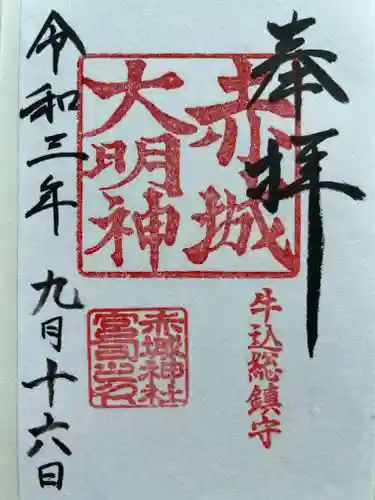 奉拝
赤城
大明神
牛込総鎮守
赤城神社
宮司之印
令和三年
九月十六日